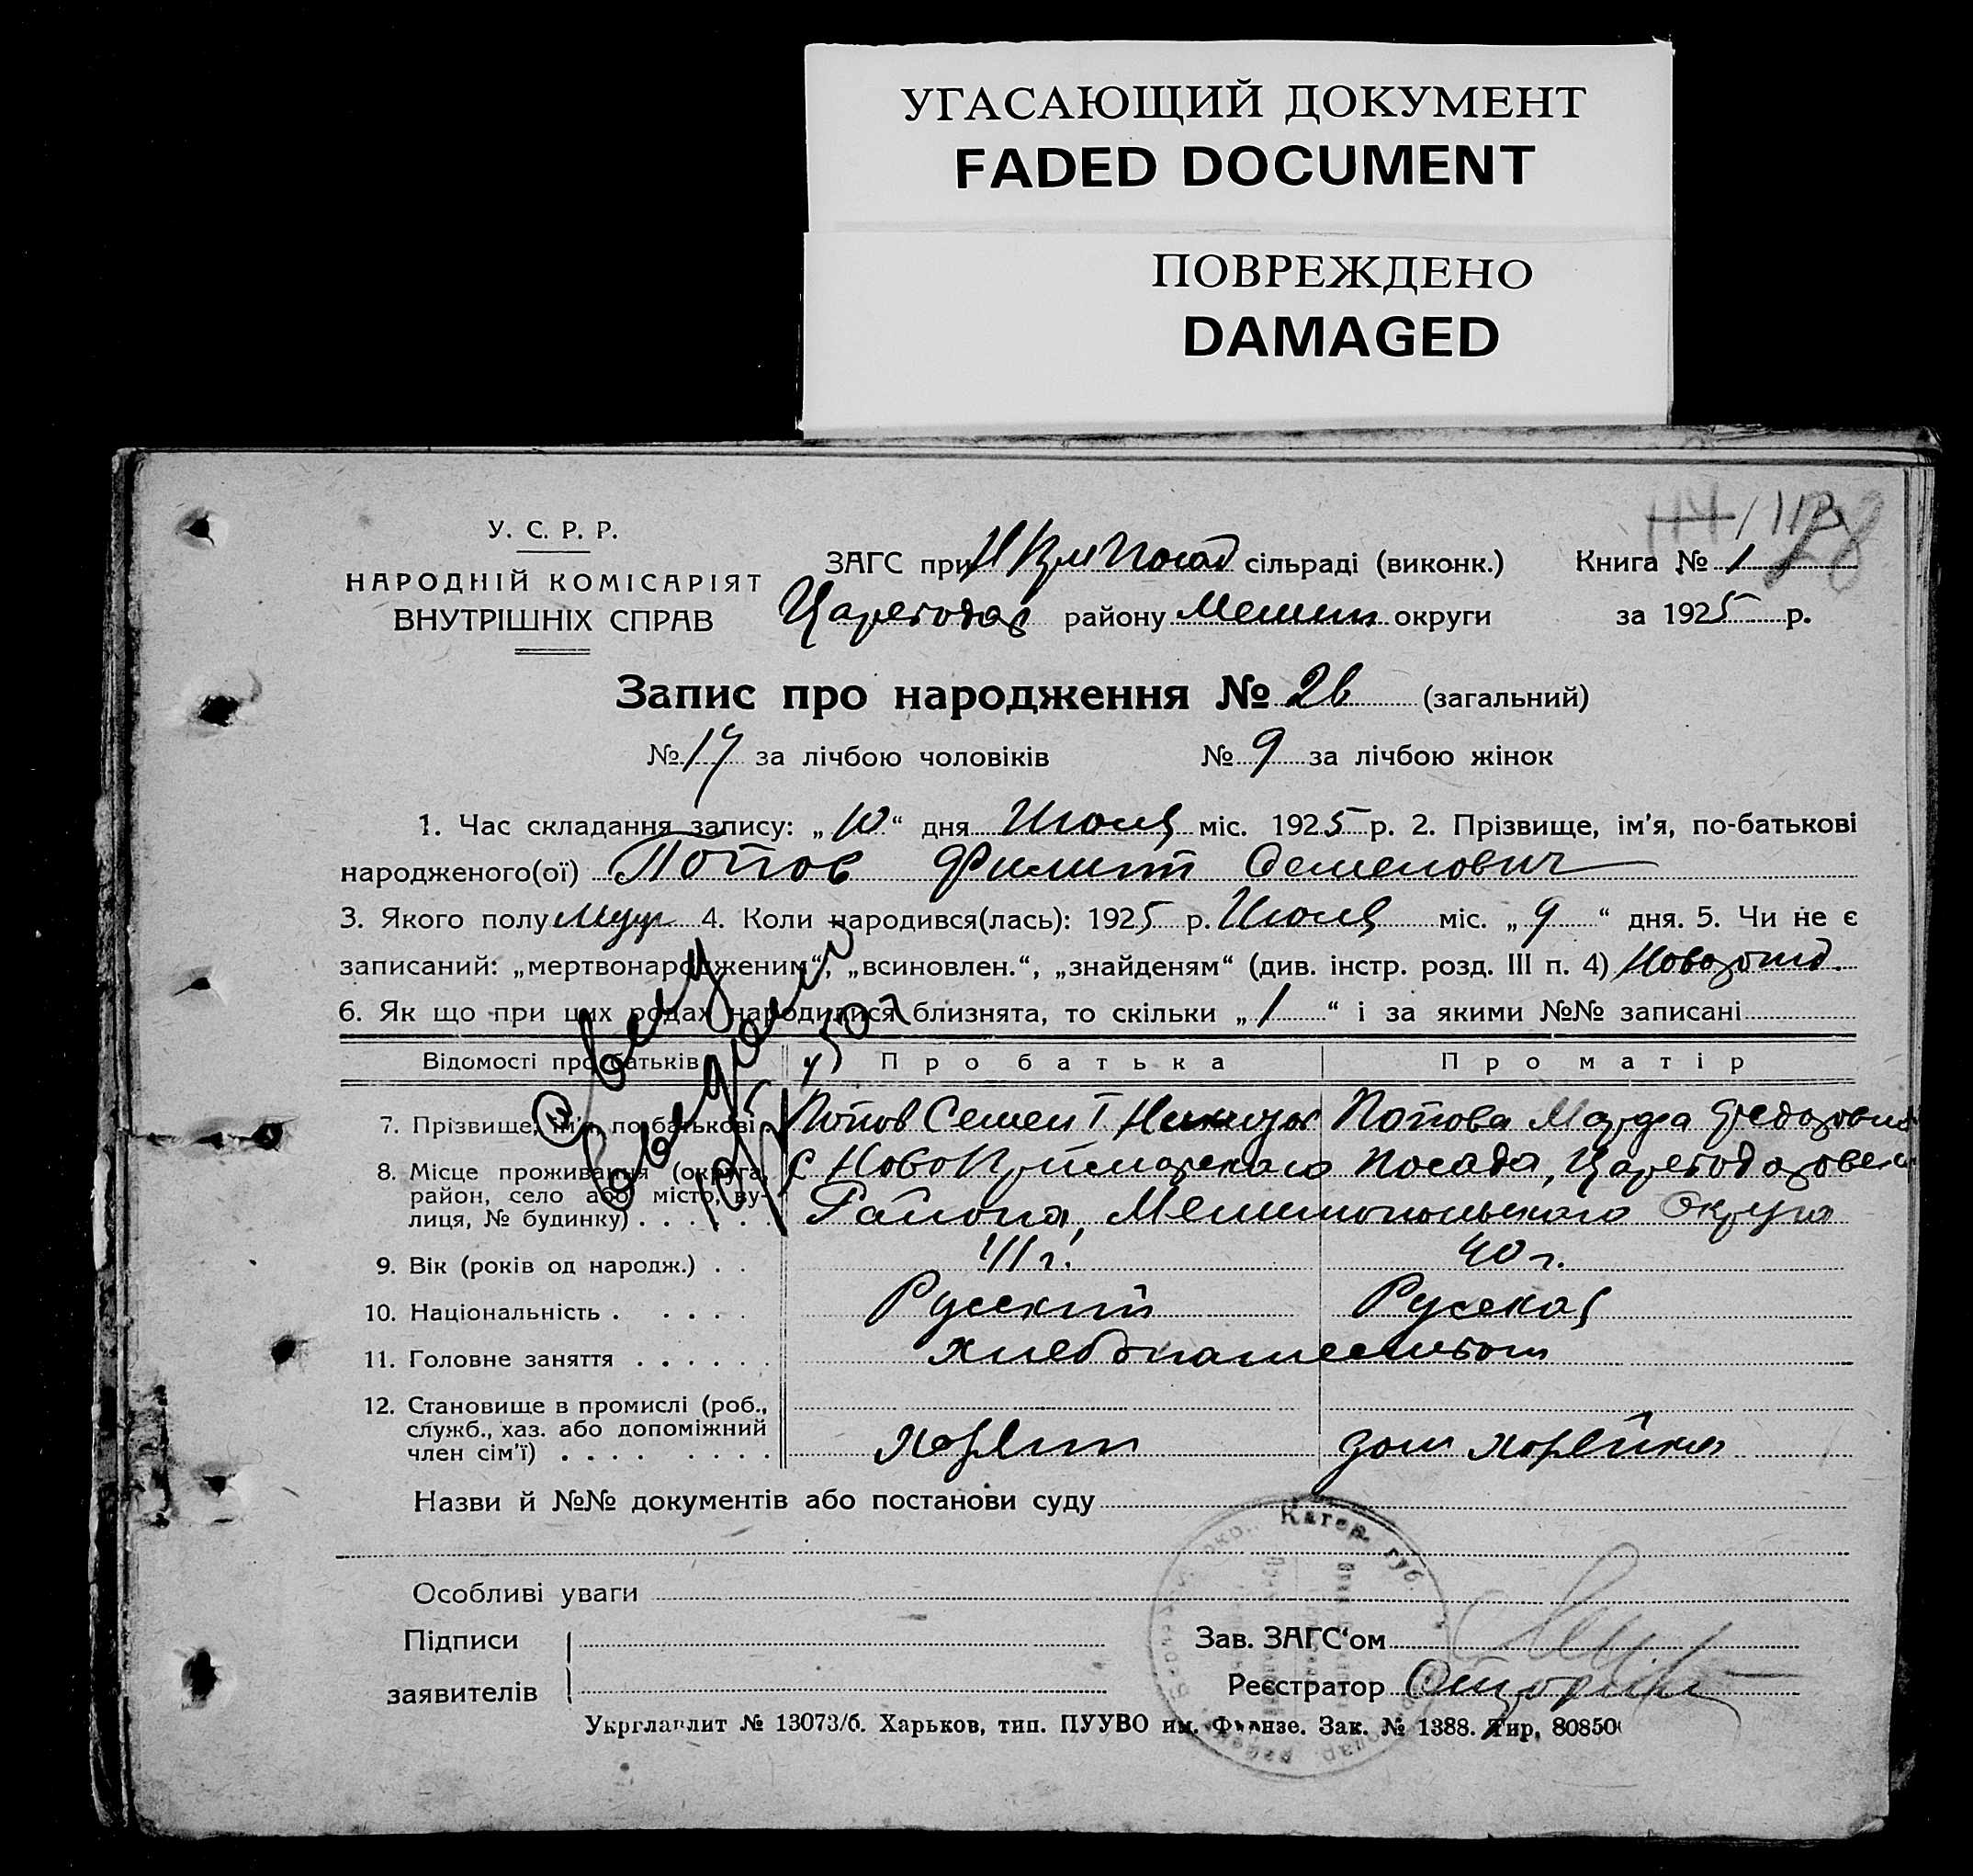 УГАСАЮЩИЙ ДОКУМЕНТ
FADED DOCUMENT
ПОВРЕЖДЕНО
DAMAGED
У. С. Р. Р.
НАРОДНІЙ КОМІСАРІЯТ
ВНУТРІШНІХ СПРАВ
ЗАГС при сільраді (виконк.)
району округи
Книга № 1
за 1925 р.
Запис про народження № 26 (загальний)
№ 17 за лічбою чоловіків № 9 за лічбою жінок
1. Час складання запису: „10“ дня Июля міс. 1925 р. 2. Прізвище, ім’я, по-батькові
народженого(ої) Попов Филипп Семенович
3. Якого полу Муж 4. Коли народився(лась): 1925 р. Июля міс. „9“ дня. 5. Чи не є
записаний: „мертвонародженим“, „всиновлен.“, „знайденям“ (див. інстр. розд. III п. 4)
6. Як що при цих родах народилися близнята, то скільки „1“ і за якими №№ записані
Відомості про батьків Про батька Про матір
7. Прізвище, ім’я, по батькові Попов Семен Попова Марфа Федоровна
8. Місце проживання (округа, район, село або місто, вулиця, № будинку) Посада,
Района, Мелитопольского Округа
9. Вік (років од народж.) 41 г. 40 г.
10. Національність Русский Русская
11. Головне заняття хлебопашеством
12. Становище в промислі (роб., служб., хаз. або допоміжний член сім’ї)
Назви й №№ документів або постанови суду
Особливі уваги
Підписи
заявителів
Зав. ЗАГС‘ом
Реєстратор
Катер. губ.
Укрглавлит № 13073/б. Харьков, тип. ПУУВО им. Фрунзе. Зак. № 1388. Тир, 80850